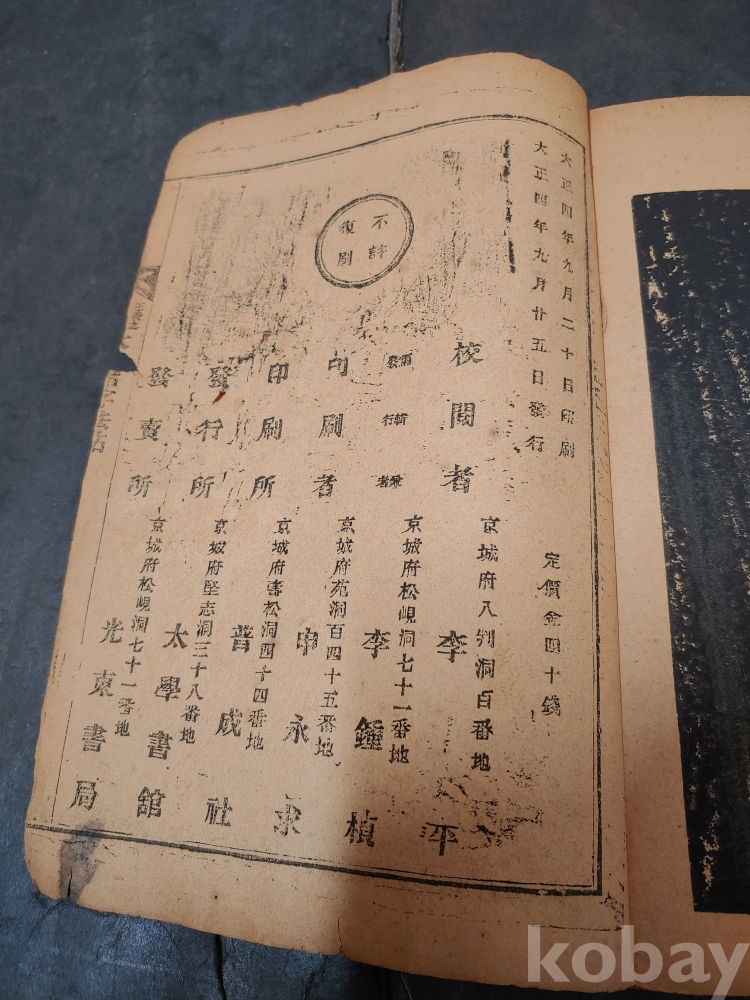 大正四年九月二十日印刷
大正四年九月廿五日發行
定價金四十錢
不許
復刷
校閱者
京城府八判洞百番地
李
平
編輯兼
發行者
京城府松峴洞七十一番地
李鍾楨
印刷者
京城府苑洞百四十五番地
申永求
印刷所
京城府壽松洞四十四番地
普成社
發行所
京城府堅志洞三十八番地
太學書館
發賣所
京城府松峴洞七十一番地
光東書局
kobay